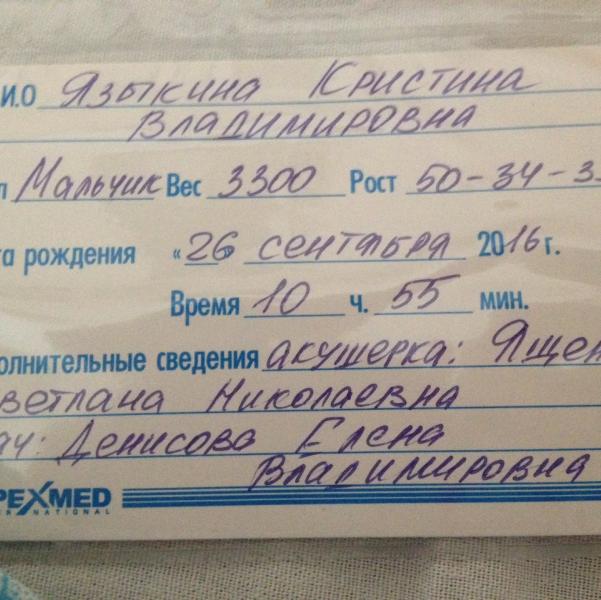 И.О Языкина Кристина
Владимировна
Мальчик Вес 3300 Рост 50-34-3
та рождения «26» сентября 2016 г.
Время 10 ч. 55 мин.
олнительные сведения акушерка: Ящен
ветлана Николаевна
ач: Денисова Елена
Владимировна
PEXMED
INTERNATIONAL